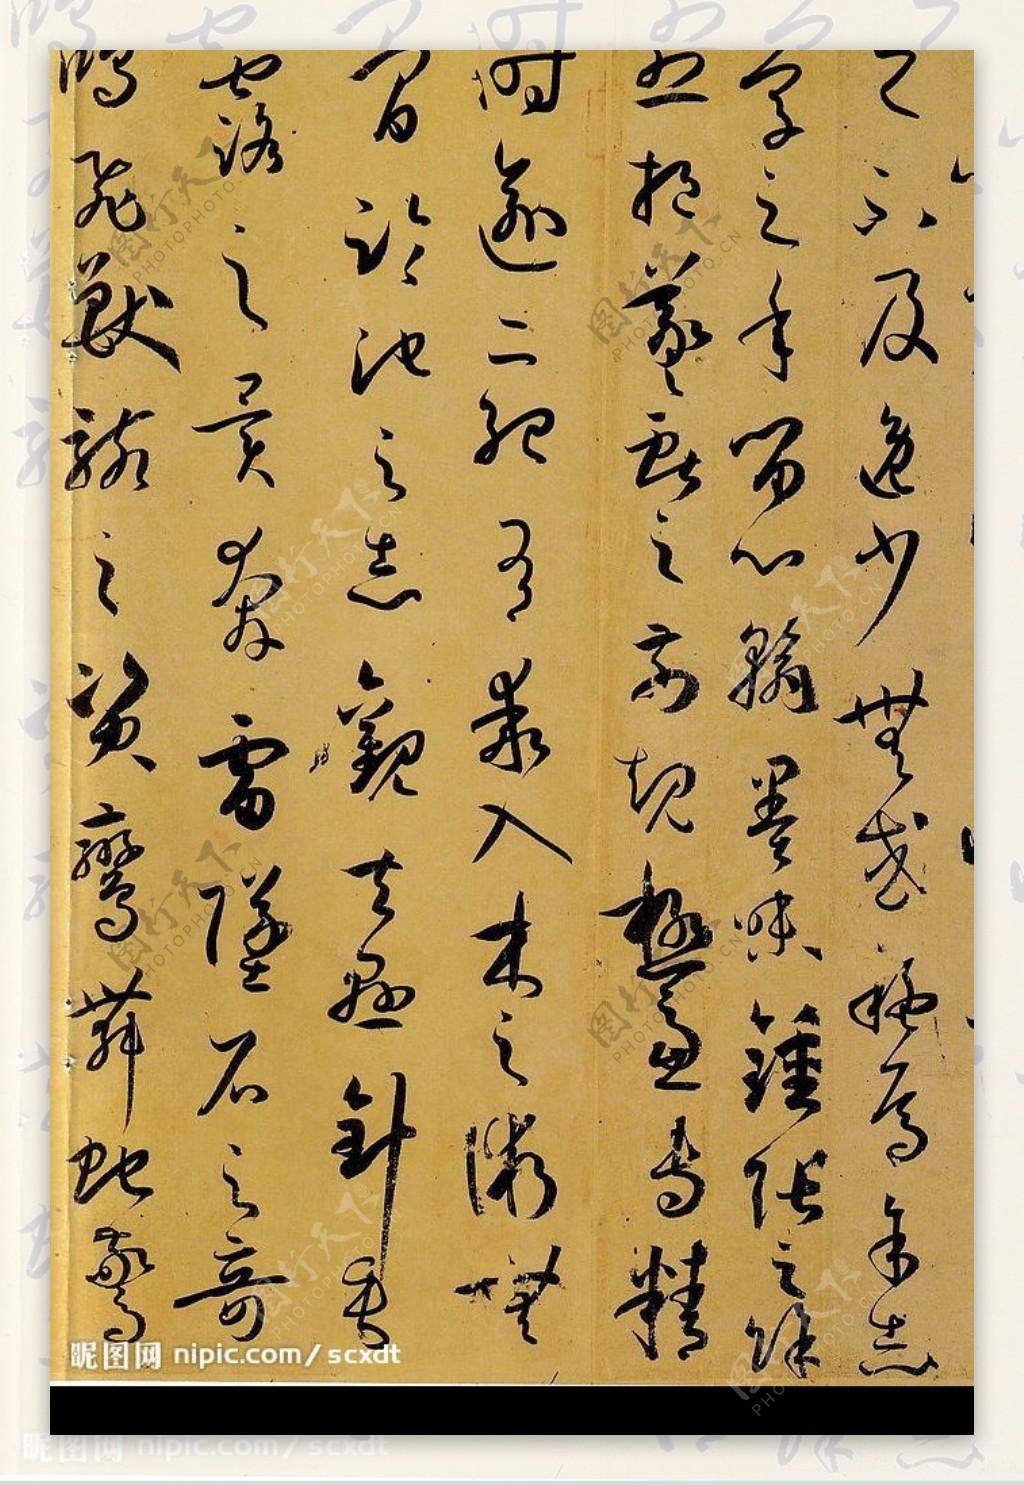 之不及逸少無或疑焉余志
學之年留心翰墨味鍾張之餘
烈挹羲獻之前規極慮專精
時逾二紀有乖入木之術無
間臨池之志觀夫懸針垂
露之異奔雷墜石之奇
鴻飛獸駭之資鸞舞蛇驚
昵图网 nipic.com/scxdt